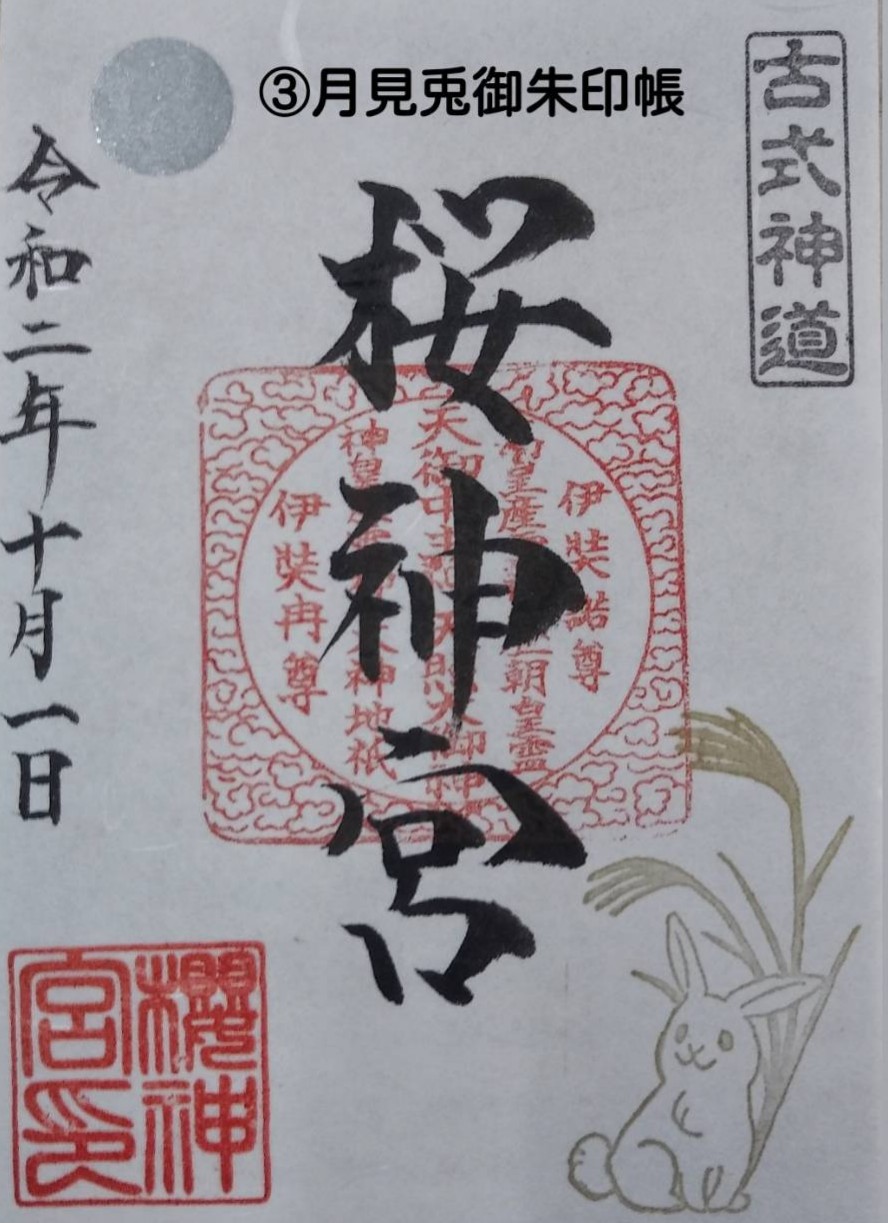 ③月見兎御朱印帳
古式神道
桜神宮
伊弉諾尊
天御中主
天照大御神
神皇
天神地祇
伊弉冉尊
令和二年十月一日
櫻神宮印